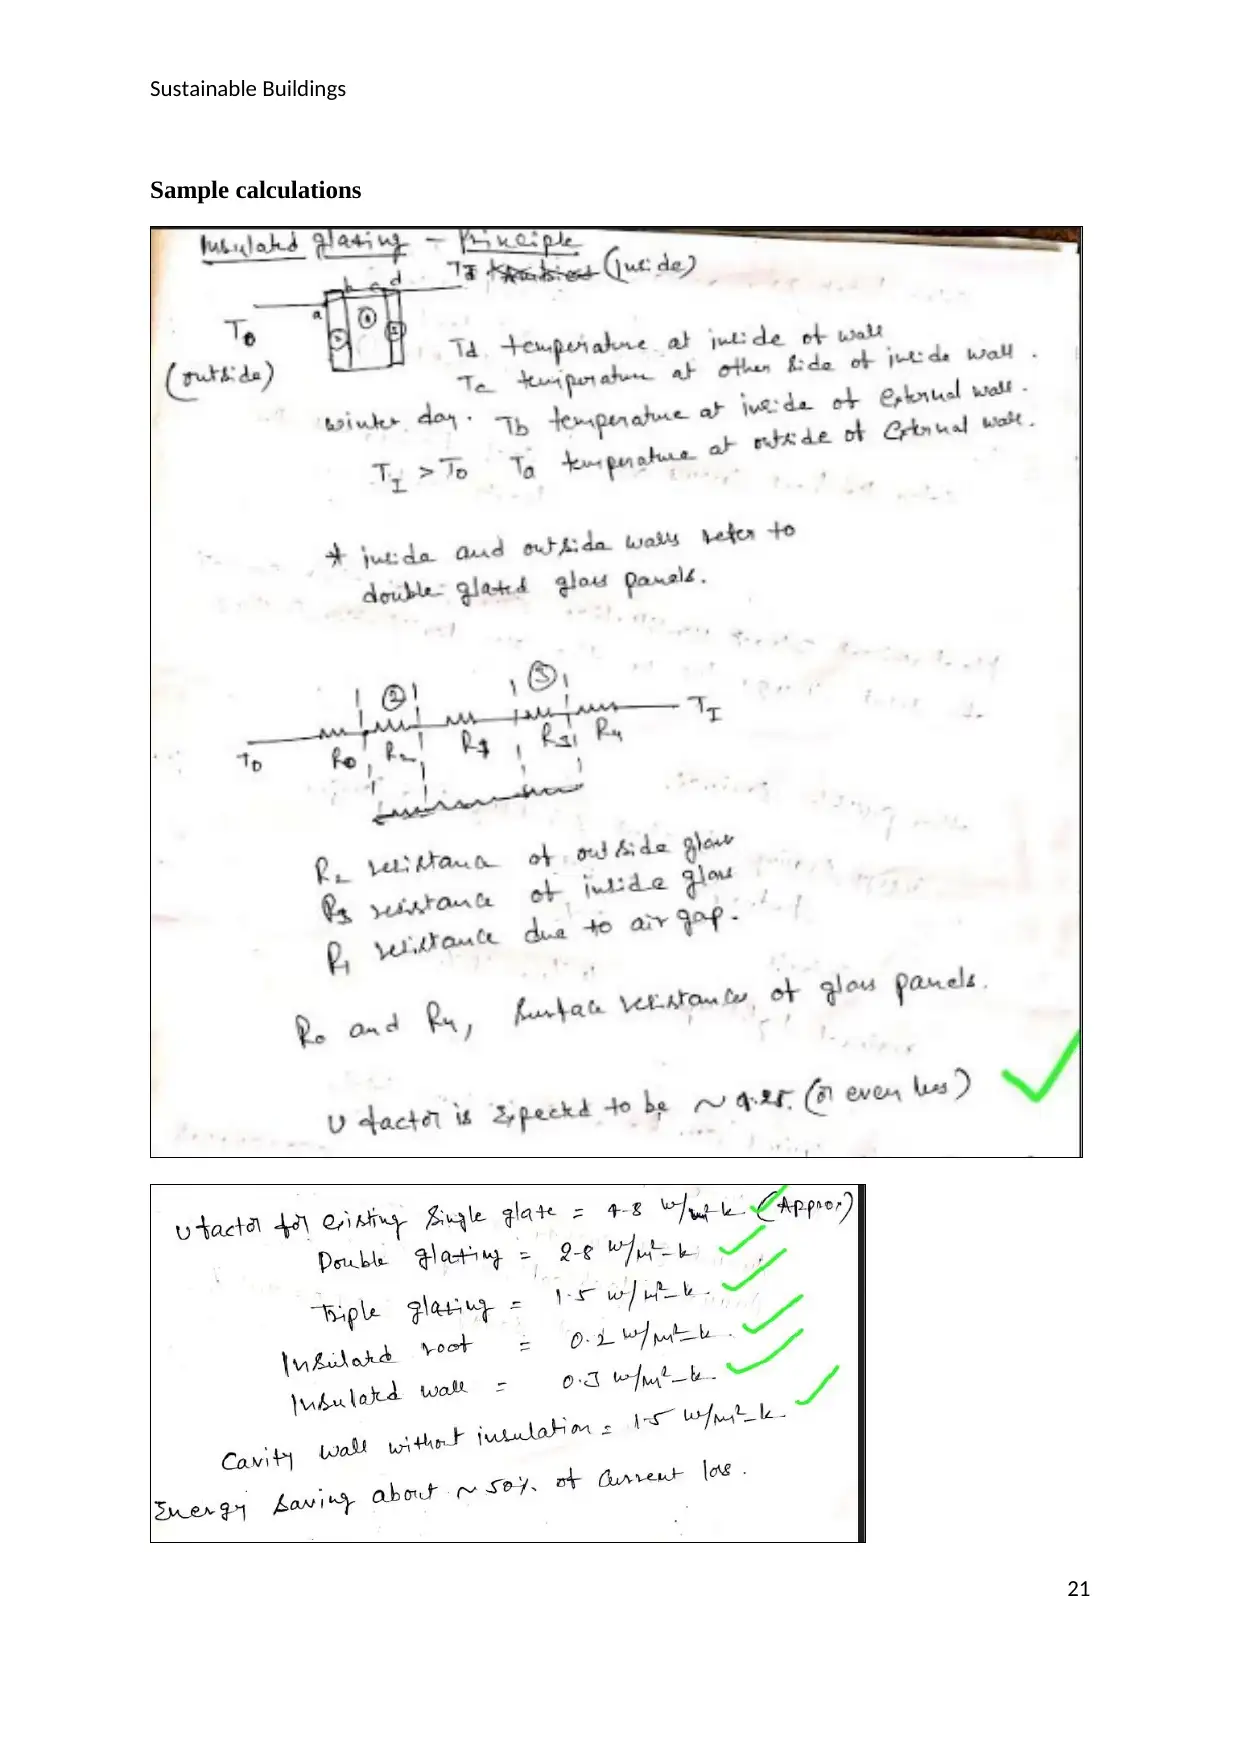 Sustainable Buildings
Sample calculations
Insulated glazing - Principle
(Inside)
b c d
a
To
(outside)
Td temperature at inside of wall
Tc temperature at other side of inside wall.
winter day. Tb temperature at inside of external wall.
TI > To Ta temperature at outside of external wall.
* inside and outside walls refer to
double glazed glass panels.
② ③
To R0 R2 R1 R3 R4 TI
R2 resistance of outside glass
R3 resistance of inside glass
R1 resistance due to air gap.
R0 and R4, surface resistances of glass panels.
U factor is Expected to be ~ (or even less)
U factor for existing single glaze = 4.8 W/m²-k (Approx)
Double glazing = 2.8 W/m²-k
Triple glazing = 1.5 W/m²-k.
Insulated roof = 0.2 W/m²-k.
Insulated wall = 0.3 W/m²-k.
Cavity wall without insulation = 1.5 W/m²-k.
Energy saving about ~ 50% of current loss.
21